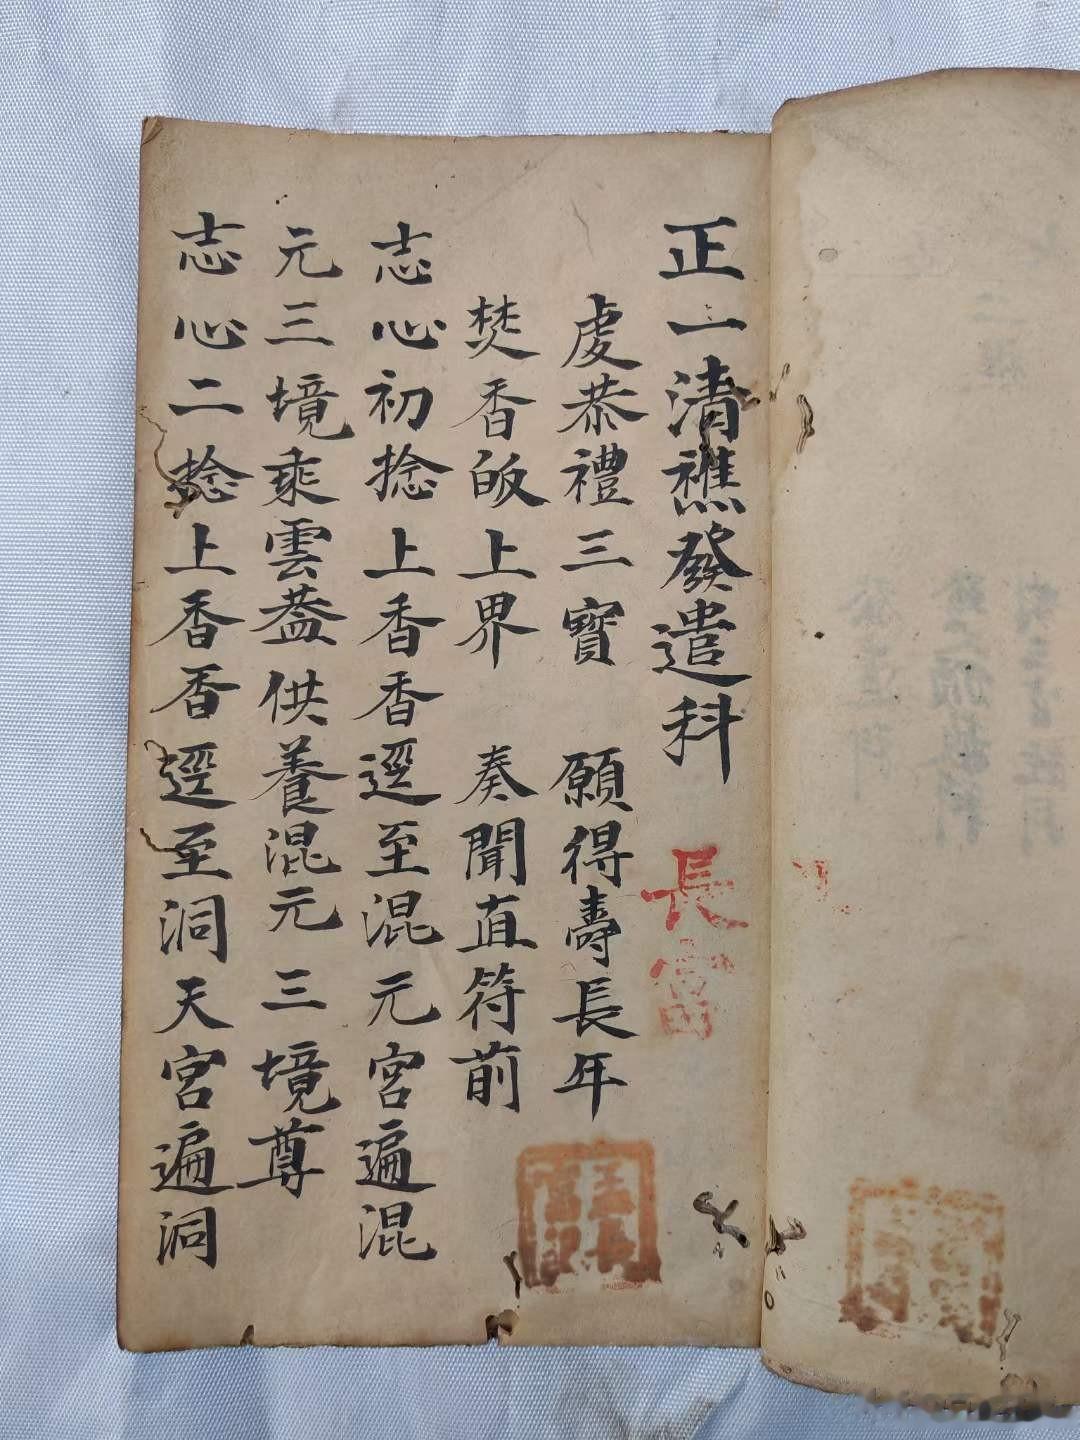 正一清醮發遣科
長富
虔恭禮三寶 願得壽長年
焚香皈上界 奏聞直符前
志心初捻上香香逕至混元宮遍混
元三境乘雲蓋供養混元三境尊
志心二捻上香香逕至洞天宮遍洞
王長富記